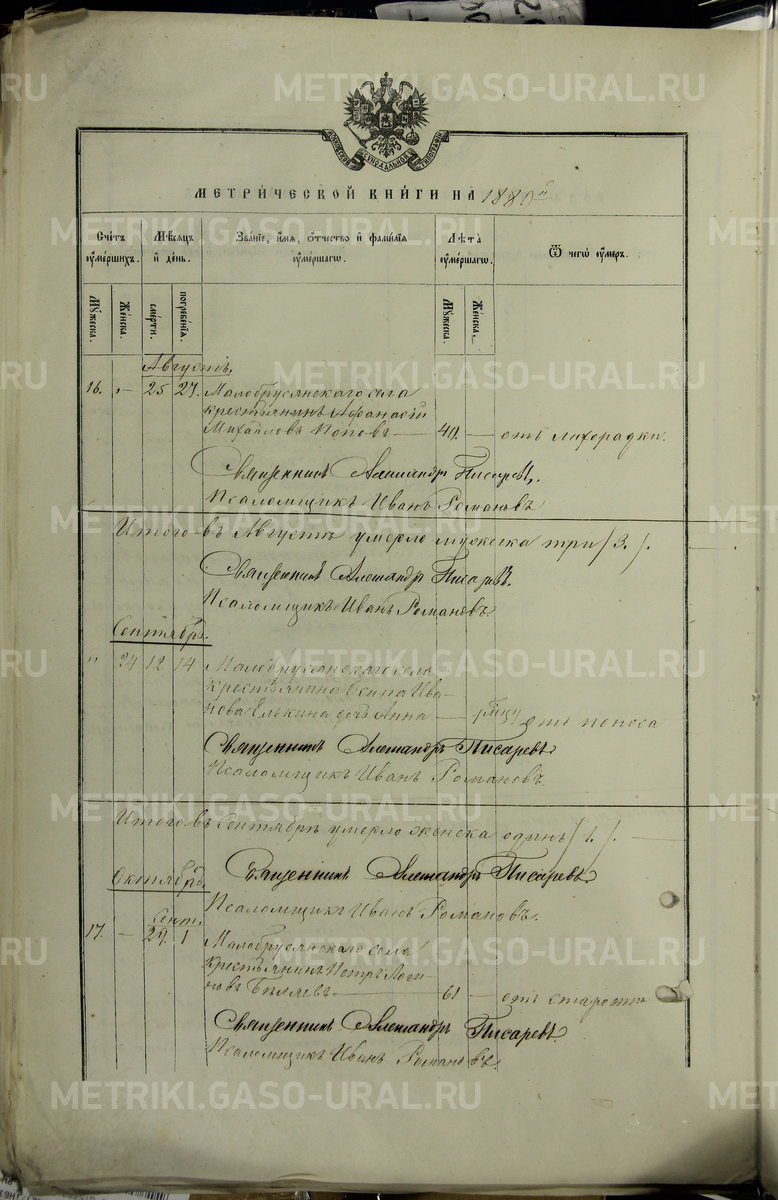 METRIKI.GASO-URAL.RU
МЕТРИ́ЧЕСКОЙ КНИ́ГИ НА 1880й
Сче́тъ ᲂу҆ме́ршихъ.
Мѣ́сѧцъ и҆ де́нь.
Зва́нїе, и҆́мѧ, ѻ҆́тчество и҆ фами́лїѧ ᲂу҆ме́ршагѡ.
Лѣ́та ᲂу҆ме́ршагѡ.
Ѿ чегѡ̀ ᲂу҆́меръ.
Мꙋ́жеска.
Же́нска.
сме́рти.
погребе́нїѧ.
Мꙋ́жеска.
Же́нска.
Августъ.
16. „— 25 27. Малобрусянскаго села
крестьянинъ Афанасій
Михайловъ Поповъ — 49. — отъ лихорадки.
Священникъ Александръ Писаревъ.
Псаломщикъ Иванъ Романовъ
Итого въ Августѣ умерло мужеска три /3./.
Священникъ Александръ Писаревъ.
Псаломщикъ Иванъ Романовъ.
Сентябрь.
„ 24 12 14 Малобрусянскаго села
крестьянина Осипа Ива-
нова Елькина дочь Анна — отъ поноса
Священникъ Александръ Писаревъ.
Псаломщикъ Иванъ Романовъ.
Итого въ Сентябрѣ умерло женска одинъ /1./.
Священникъ Александръ Писаревъ.
Октябрь.
Псаломщикъ Иванъ Романовъ.
Сент.
17. — 29. 1 Малобрусянскаго села
крестьянинъ Петръ Логи-
новъ Бѣляевъ — 61 — отъ старости
Священникъ Александръ Писаревъ.
Псаломщикъ Иванъ Романовъ.